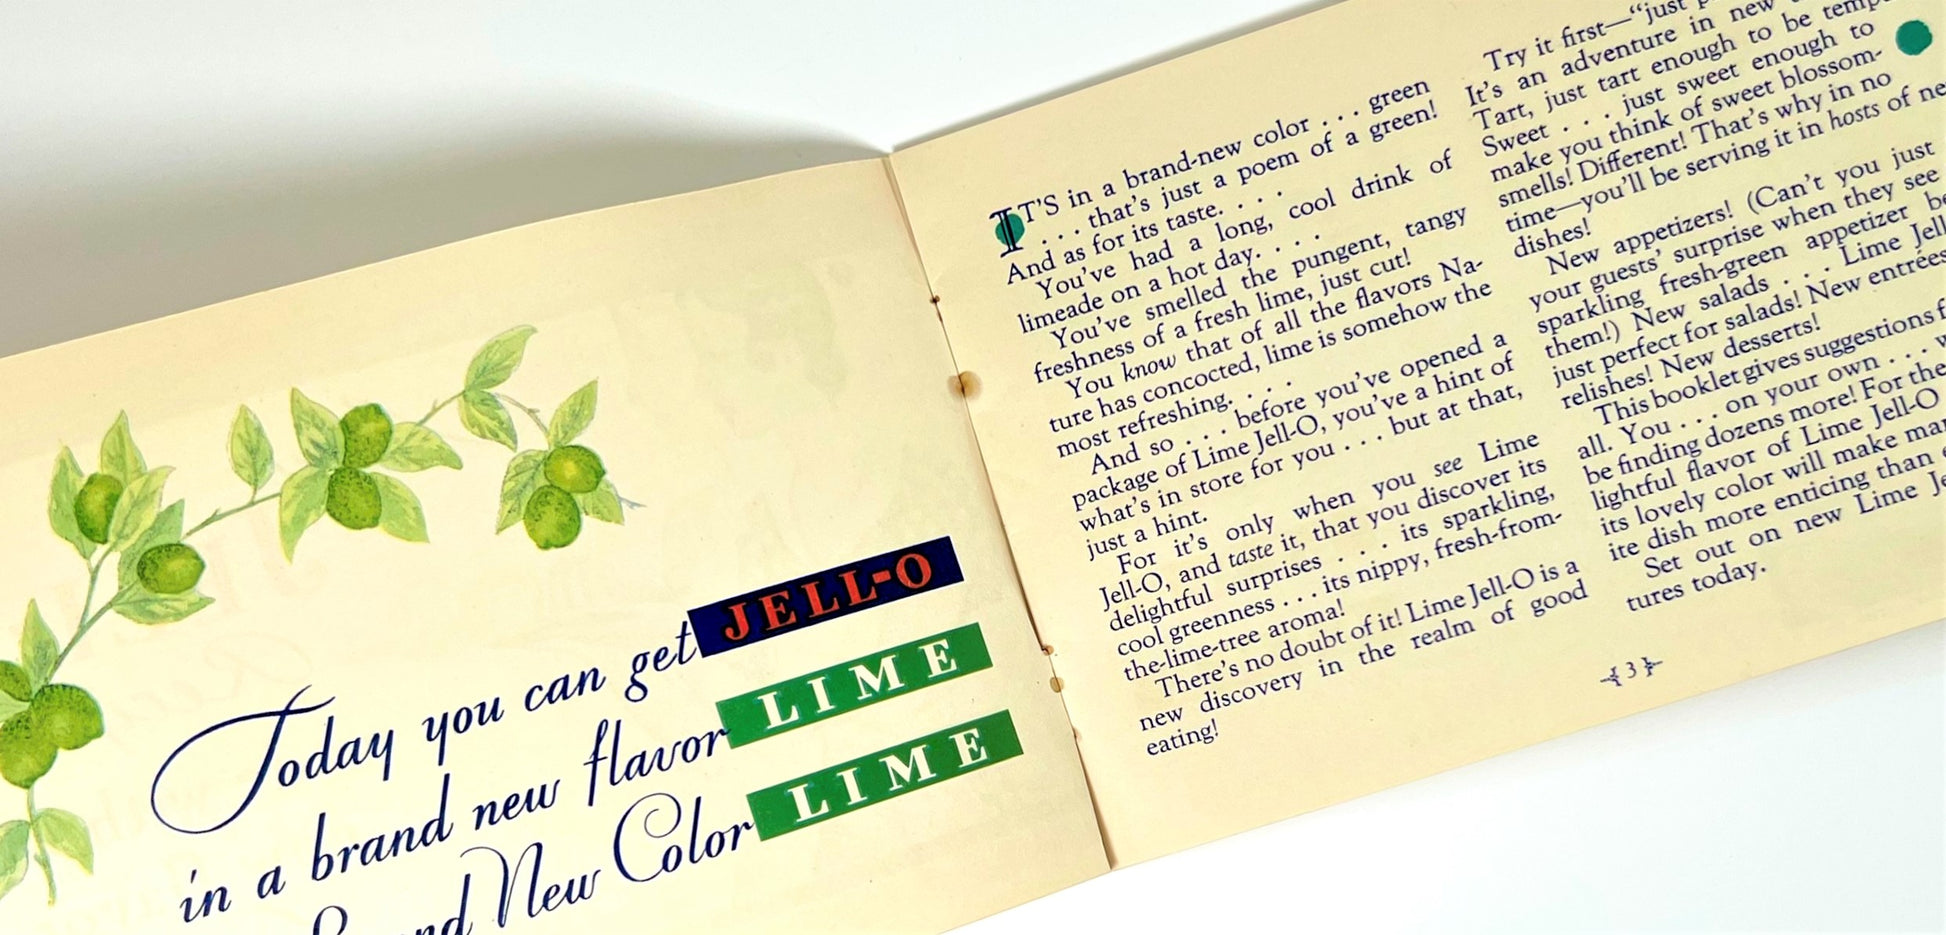 Today you can get JELL-O
in a brand new flavor LIME
New Color LIME
IT'S in a brand-new color . . . green
. . . that's just a poem of a green!
And as for its taste. . . .
You've had a long, cool drink of
limeade on a hot day. . . .
You've smelled the pungent, tangy
freshness of a fresh lime, just cut!
You know that of all the flavors Na-
ture has concocted, lime is somehow the
most refreshing. . . .
And so . . . before you've opened a
package of Lime Jell-O, you've a hint of
what's in store for you . . . but at that,
just a hint.
For it's only when you see Lime
Jell-O, and taste it, that you discover its
delightful surprises . . . its sparkling,
cool greenness . . . its nippy, fresh-from-
the-lime-tree aroma!
There's no doubt of it! Lime Jell-O is a
new discovery in the realm of good
eating!
Try it first—“just
It's an adventure in new
Tart, just tart enough to be
Sweet . . . just sweet enough to
make you think of sweet blossom-
smells! Different! That's why in no
time—you'll be serving it in hosts of
dishes!
New appetizers! (Can't you just
your guests' surprise when they see
sparkling fresh-green appetizer
them!) New salads . . . Lime
just perfect for salads! New entrées
relishes! New desserts!
This booklet gives suggestions
all. You . . . on your own . . .
be finding dozens more! For the
lightful flavor of Lime Jell-O
its lovely color will make
ite dish more enticing than
Set out on new Lime
tures today.
3